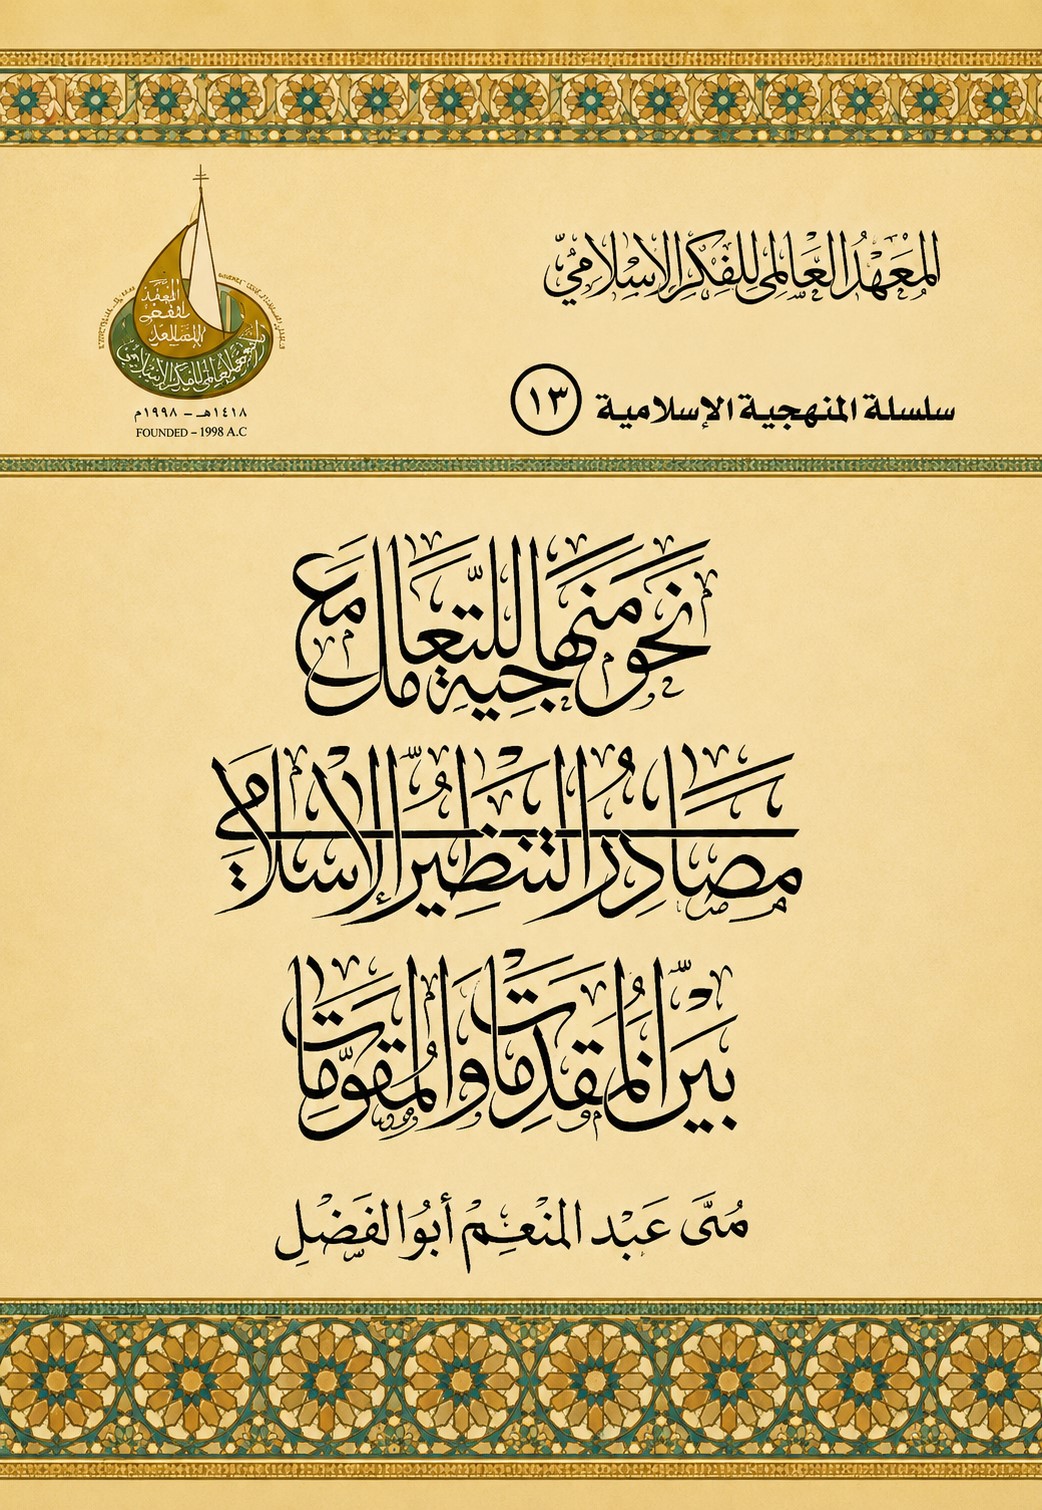 المعهد العالمي للفكر الإسلامي
سلسلة المنهجية الإسلامية ١٣
١٤١٨هـ – ١٩٩٨م
FOUNDED – 1998 A.C
نحو منهاجية للتعامل مع
مصادر التنظير الإسلامي
بين المقدمات والمقومات
منى عبد المنعم أبو الفضل